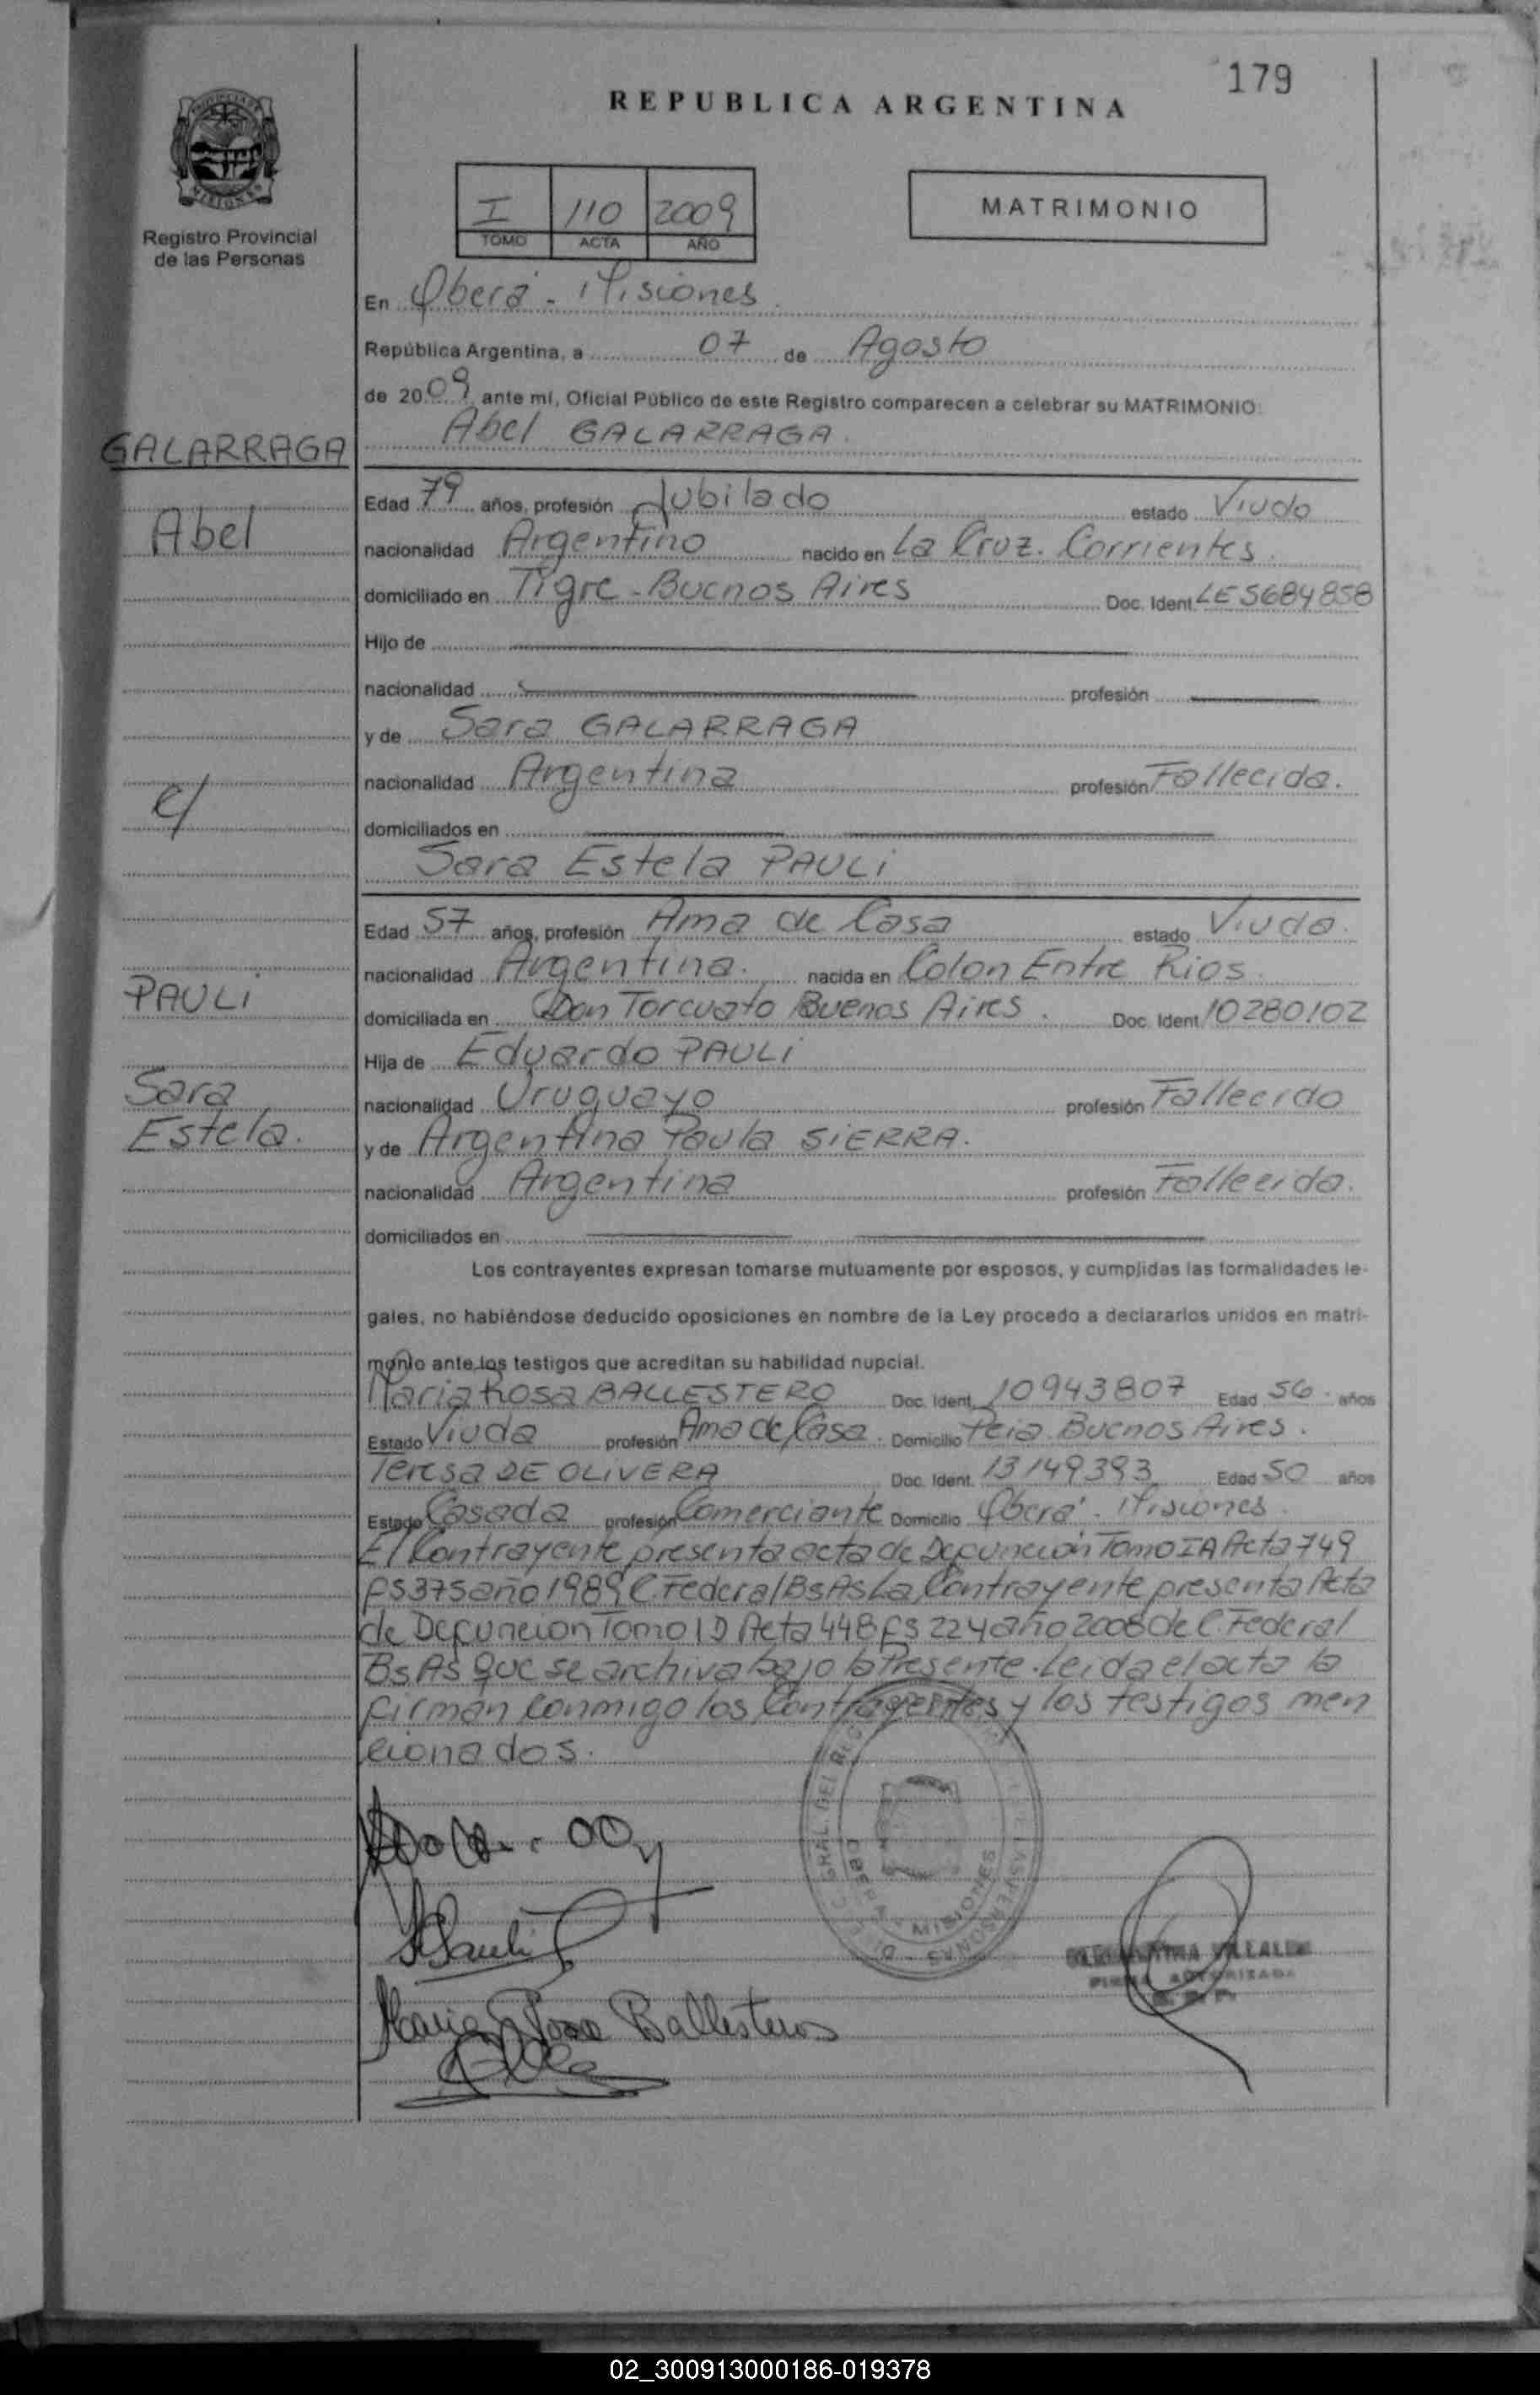 179
REPUBLICA ARGENTINA
PROVINCIA DE
MISIONES
Registro Provincial
de las Personas
I 110 2009
TOMO ACTA AÑO
MATRIMONIO
En Oberá - Misiones
República Argentina, a 07 de Agosto
de 2009 ante mí, Oficial Público de este Registro comparecen a celebrar su MATRIMONIO:
GALARRAGA
Abel GALARRAGA.
Edad 79 años, profesión Jubilado estado Viudo
Abel
nacionalidad Argentino nacido en La Cruz. Corrientes.
domiciliado en Tigre - Buenos Aires Doc. Ident. LE5684858
Hijo de
nacionalidad profesión
y de Sara GALARRAGA
nacionalidad Argentina profesión Fallecida.
c/
domiciliados en
Sara Estela PAULi
Edad 57 años, profesión Ama de Casa estado Viuda.
nacionalidad Argentina. nacida en Colon Entre Rios.
PAULi
domiciliada en Don Torcuato Buenos Aires. Doc. Ident. 10280102
Hija de Eduardo PAULi
Sara
nacionalidad Uruguayo profesión Fallecido
Estela.
y de Argentina Paula SiERRA.
nacionalidad Argentina profesión Fallecida.
domiciliados en
Los contrayentes expresan tomarse mutuamente por esposos, y cumplidas las formalidades le-
gales, no habiéndose deducido oposiciones en nombre de la Ley procedo a declararlos unidos en matri-
monio ante los testigos que acreditan su habilidad nupcial.
Maria Rosa BALLESTERO Doc. Ident. 10943807 Edad 56. años
Estado Viuda profesión Ama de Casa. Domicilio Pcia. Buenos Aires.
Teresa DE OLIVERA Doc. Ident. 13149393 Edad 50 años
Estado Casada profesión Comerciante Domicilio Oberá - Misiones.
El Contrayente presenta acta de Defuncion Tomo IA Acta 749
fs 375 año 1989 C. Federal Bs As La Contrayente presenta Acta
de Defuncion Tomo 1D Acta 448 fs 224 año 2008 de C. Federal
Bs As que se archiva bajo la Presente. Leida el acta la
firman conmigo los Contrayentes y los testigos men
cionados.
MISIONES
S Pauli
Maria Rosa Ballesteros
VILLALBA
FIRMA AUTORIZADA
02_300913000186-019378